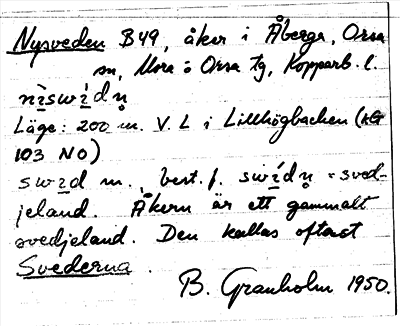 Nysveden B49, åker i Åberga, Orsa
sn, Mora o Orsa tg, Kopparb. l.
nìswídn̥
Läge: 200 m. V. L i Lillhögbacken (
103 NO)
swid m., best. f. swídn̥ = sved-
jeland. Åkern är ett gammalt
svedjeland. Den kallas oftast
Svederna.
B. Granholm 1950.